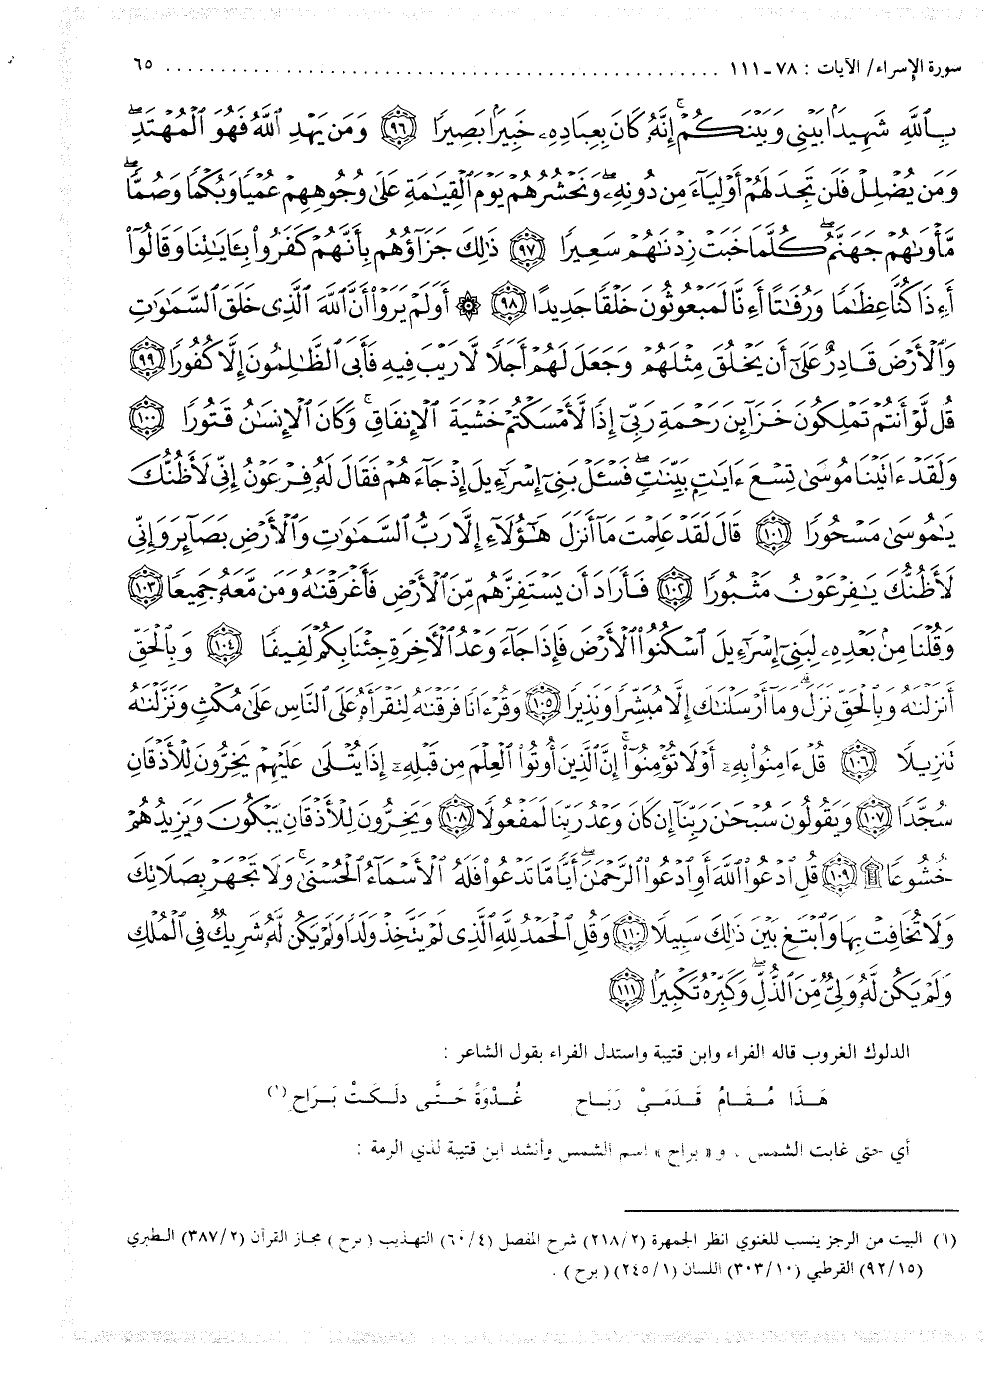 سورة الإسراء/ الآيات : ٧٨-١١١ ........................................................ ٦٥
بِٱللَّهِ شَهِيدًۢا بَيْنِى وَبَيْنَكُمْ ۚ إِنَّهُۥ كَانَ بِعِبَادِهِۦ خَبِيرًۢا بَصِيرًا ٩٦ وَمَن يَهْدِ ٱللَّهُ فَهُوَ ٱلْمُهْتَدِ ۖ
وَمَن يُضْلِلْ فَلَن تَجِدَ لَهُمْ أَوْلِيَآءَ مِن دُونِهِۦ ۖ وَنَحْشُرُهُمْ يَوْمَ ٱلْقِيَٰمَةِ عَلَىٰ وُجُوهِهِمْ عُمْيًا وَبُكْمًا وَصُمًّا ۖ
مَّأْوَىٰهُمْ جَهَنَّمُ ۖ كُلَّمَا خَبَتْ زِدْنَٰهُمْ سَعِيرًا ٩٧ ذَٰلِكَ جَزَآؤُهُم بِأَنَّهُمْ كَفَرُوا۟ بِـَٔايَٰتِنَا وَقَالُوٓا۟
أَءِذَا كُنَّا عِظَٰمًا وَرُفَٰتًا أَءِنَّا لَمَبْعُوثُونَ خَلْقًا جَدِيدًا ٩٨ ۞ أَوَلَمْ يَرَوْا۟ أَنَّ ٱللَّهَ ٱلَّذِى خَلَقَ ٱلسَّمَٰوَٰتِ
وَٱلْأَرْضَ قَادِرٌ عَلَىٰٓ أَن يَخْلُقَ مِثْلَهُمْ وَجَعَلَ لَهُمْ أَجَلًا لَّا رَيْبَ فِيهِ فَأَبَى ٱلظَّٰلِمُونَ إِلَّا كُفُورًا ٩٩
قُل لَّوْ أَنتُمْ تَمْلِكُونَ خَزَآئِنَ رَحْمَةِ رَبِّىٓ إِذًا لَّأَمْسَكْتُمْ خَشْيَةَ ٱلْإِنفَاقِ ۚ وَكَانَ ٱلْإِنسَٰنُ قَتُورًا ١٠٠
وَلَقَدْ ءَاتَيْنَا مُوسَىٰ تِسْعَ ءَايَٰتٍۭ بَيِّنَٰتٍ ۖ فَسْـَٔلْ بَنِىٓ إِسْرَٰٓءِيلَ إِذْ جَآءَهُمْ فَقَالَ لَهُۥ فِرْعَوْنُ إِنِّى لَأَظُنُّكَ
يَٰمُوسَىٰ مَسْحُورًا ١٠١ قَالَ لَقَدْ عَلِمْتَ مَآ أَنزَلَ هَٰٓؤُلَآءِ إِلَّا رَبُّ ٱلسَّمَٰوَٰتِ وَٱلْأَرْضِ بَصَآئِرَ وَإِنِّى
لَأَظُنُّكَ يَٰفِرْعَوْنُ مَثْبُورًا ١٠٢ فَأَرَادَ أَن يَسْتَفِزَّهُم مِّنَ ٱلْأَرْضِ فَأَغْرَقْنَٰهُ وَمَن مَّعَهُۥ جَمِيعًا ١٠٣
وَقُلْنَا مِنۢ بَعْدِهِۦ لِبَنِىٓ إِسْرَٰٓءِيلَ ٱسْكُنُوا۟ ٱلْأَرْضَ فَإِذَا جَآءَ وَعْدُ ٱلْءَاخِرَةِ جِئْنَا بِكُمْ لَفِيفًا ١٠٤ وَبِٱلْحَقِّ
أَنزَلْنَٰهُ وَبِٱلْحَقِّ نَزَلَ ۗ وَمَآ أَرْسَلْنَٰكَ إِلَّا مُبَشِّرًا وَنَذِيرًا ١٠٥ وَقُرْءَانًا فَرَقْنَٰهُ لِتَقْرَأَهُۥ عَلَى ٱلنَّاسِ عَلَىٰ مُكْثٍ وَنَزَّلْنَٰهُ
تَنزِيلًا ١٠٦ قُلْ ءَامِنُوا۟ بِهِۦٓ أَوْ لَا تُؤْمِنُوٓا۟ ۚ إِنَّ ٱلَّذِينَ أُوتُوا۟ ٱلْعِلْمَ مِن قَبْلِهِۦٓ إِذَا يُتْلَىٰ عَلَيْهِمْ يَخِرُّونَ لِلْأَذْقَانِ
سُجَّدًا ١٠٧ وَيَقُولُونَ سُبْحَٰنَ رَبِّنَآ إِن كَانَ وَعْدُ رَبِّنَا لَمَفْعُولًا ١٠٨ وَيَخِرُّونَ لِلْأَذْقَانِ يَبْكُونَ وَيَزِيدُهُمْ
خُشُوعًا ۩ ١٠٩ قُلِ ٱدْعُوا۟ ٱللَّهَ أَوِ ٱدْعُوا۟ ٱلرَّحْمَٰنَ ۖ أَيًّا مَّا تَدْعُوا۟ فَلَهُ ٱلْأَسْمَآءُ ٱلْحُسْنَىٰ ۚ وَلَا تَجْهَرْ بِصَلَاتِكَ
وَلَا تُخَافِتْ بِهَا وَٱبْتَغِ بَيْنَ ذَٰلِكَ سَبِيلًا ١١٠ وَقُلِ ٱلْحَمْدُ لِلَّهِ ٱلَّذِى لَمْ يَتَّخِذْ وَلَدًا وَلَمْ يَكُن لَّهُۥ شَرِيكٌ فِى ٱلْمُلْكِ
وَلَمْ يَكُن لَّهُۥ وَلِىٌّ مِّنَ ٱلذُّلِّ ۖ وَكَبِّرْهُ تَكْبِيرًۢا ١١١
الدلوك الغروب قاله الفراء وابن قتيبة واستدل الفراء بقول الشاعر :
هَذَا مُقَامُ قَدَمَيْ رَبَاحِ غُدْوَةً حَتَّى دلَكَتْ بَرَاحِ (١)
أي حتى غابت الشمس ، و« براح » اسم الشمس وأنشد ابن قتيبة لذي الرمة :
(١) البيت من الرجز ينسب للغنوي انظر الجمهرة (٢١٨/٢) شرح المفصل (٦٠/٤) التهذيب ( برح ) مجاز القرآن (٣٨٧/٢) الطبري
(٩٢/١٥) القرطبي (٣٠٣/١٠) اللسان (٢٤٥/١) ( برح ) .